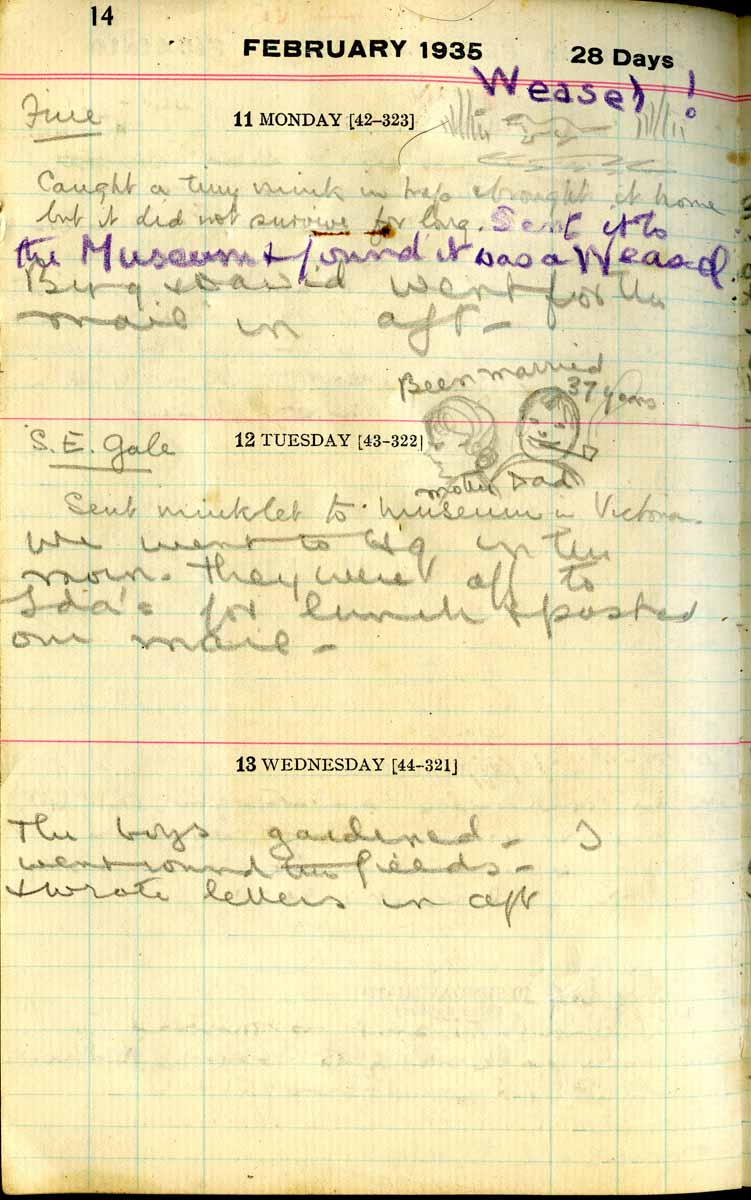 14
FEBRUARY 1935 28 Days
Weasel !
Fine
11 MONDAY [42–323]
Caught a tiny mink in trap & brought it home
but it did not survive for long. Sent it to
the Museum & found it was a Weasel
& David went for the
mail in aft –
Been married
37 years
S.E. Gale
12 TUESDAY [43–322]
Mother Dad
Sent minklet to Museum in Victoria.
We went to Hq in the
morn. They were off to
Ida's for lunch & posted
our mail –
13 WEDNESDAY [44–321]
The boys gardened – I
went round the fields –
& wrote letters in aft